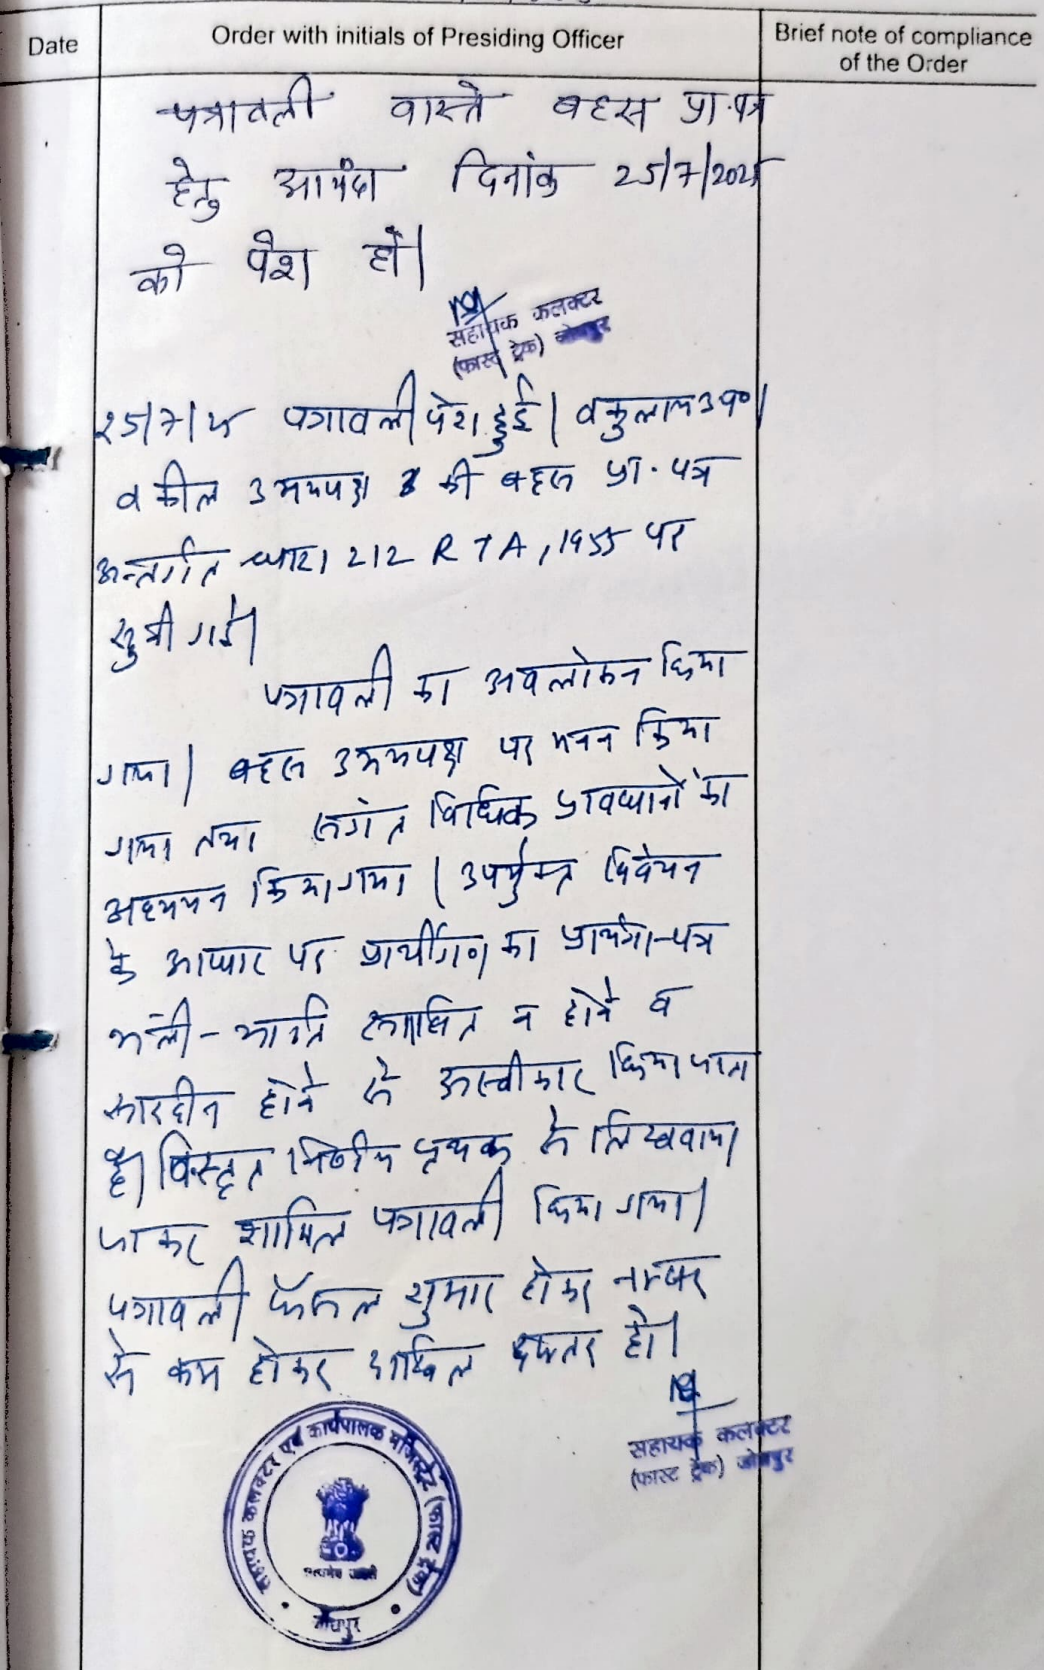 Date
Order with initials of Presiding Officer
Brief note of compliance
of the Order
पत्रावली वास्ते बहस प्रा.पत्र
हेतु आयंदा दिनांक 25/7/2025
को पेश हों।
सहायक कलक्टर
(फास्ट ट्रेक) जोधपुर
25/7/25 पत्रावली पेश हुई। वकुलाय उप०।
वकील उभयपक्ष की बहस प्रा. पत्र
अन्तर्गत धारा 212 RTA, 1955 पर
सुनी गई।
पत्रावली का अवलोकन किया
गया। बहस उभयपक्ष पर मनन किया
गया तथा संगत विधिक प्रावधानों का
अध्ययन किया गया। उपर्युक्त विवेचन
के आधार पर प्रार्थीगण का प्रार्थना-पत्र
भली-भांति साबित न होने व
सारहीन होने से अस्वीकार किया जाता
है। विस्तृत निर्णय पृथक से लिखवाया
जाकर शामिल पत्रावली किया गया।
पत्रावली फैसल शुमार होकर नम्बर
से कम होकर दाखिल दफ्तर हो।
सहायक कलक्टर
(फास्ट ट्रेक) जोधपुर
सहायक कलक्टर एवं कार्यपालक मजिस्ट्रेट (फास्ट ट्रेक)
सत्यमेव जयते
जोधपुर